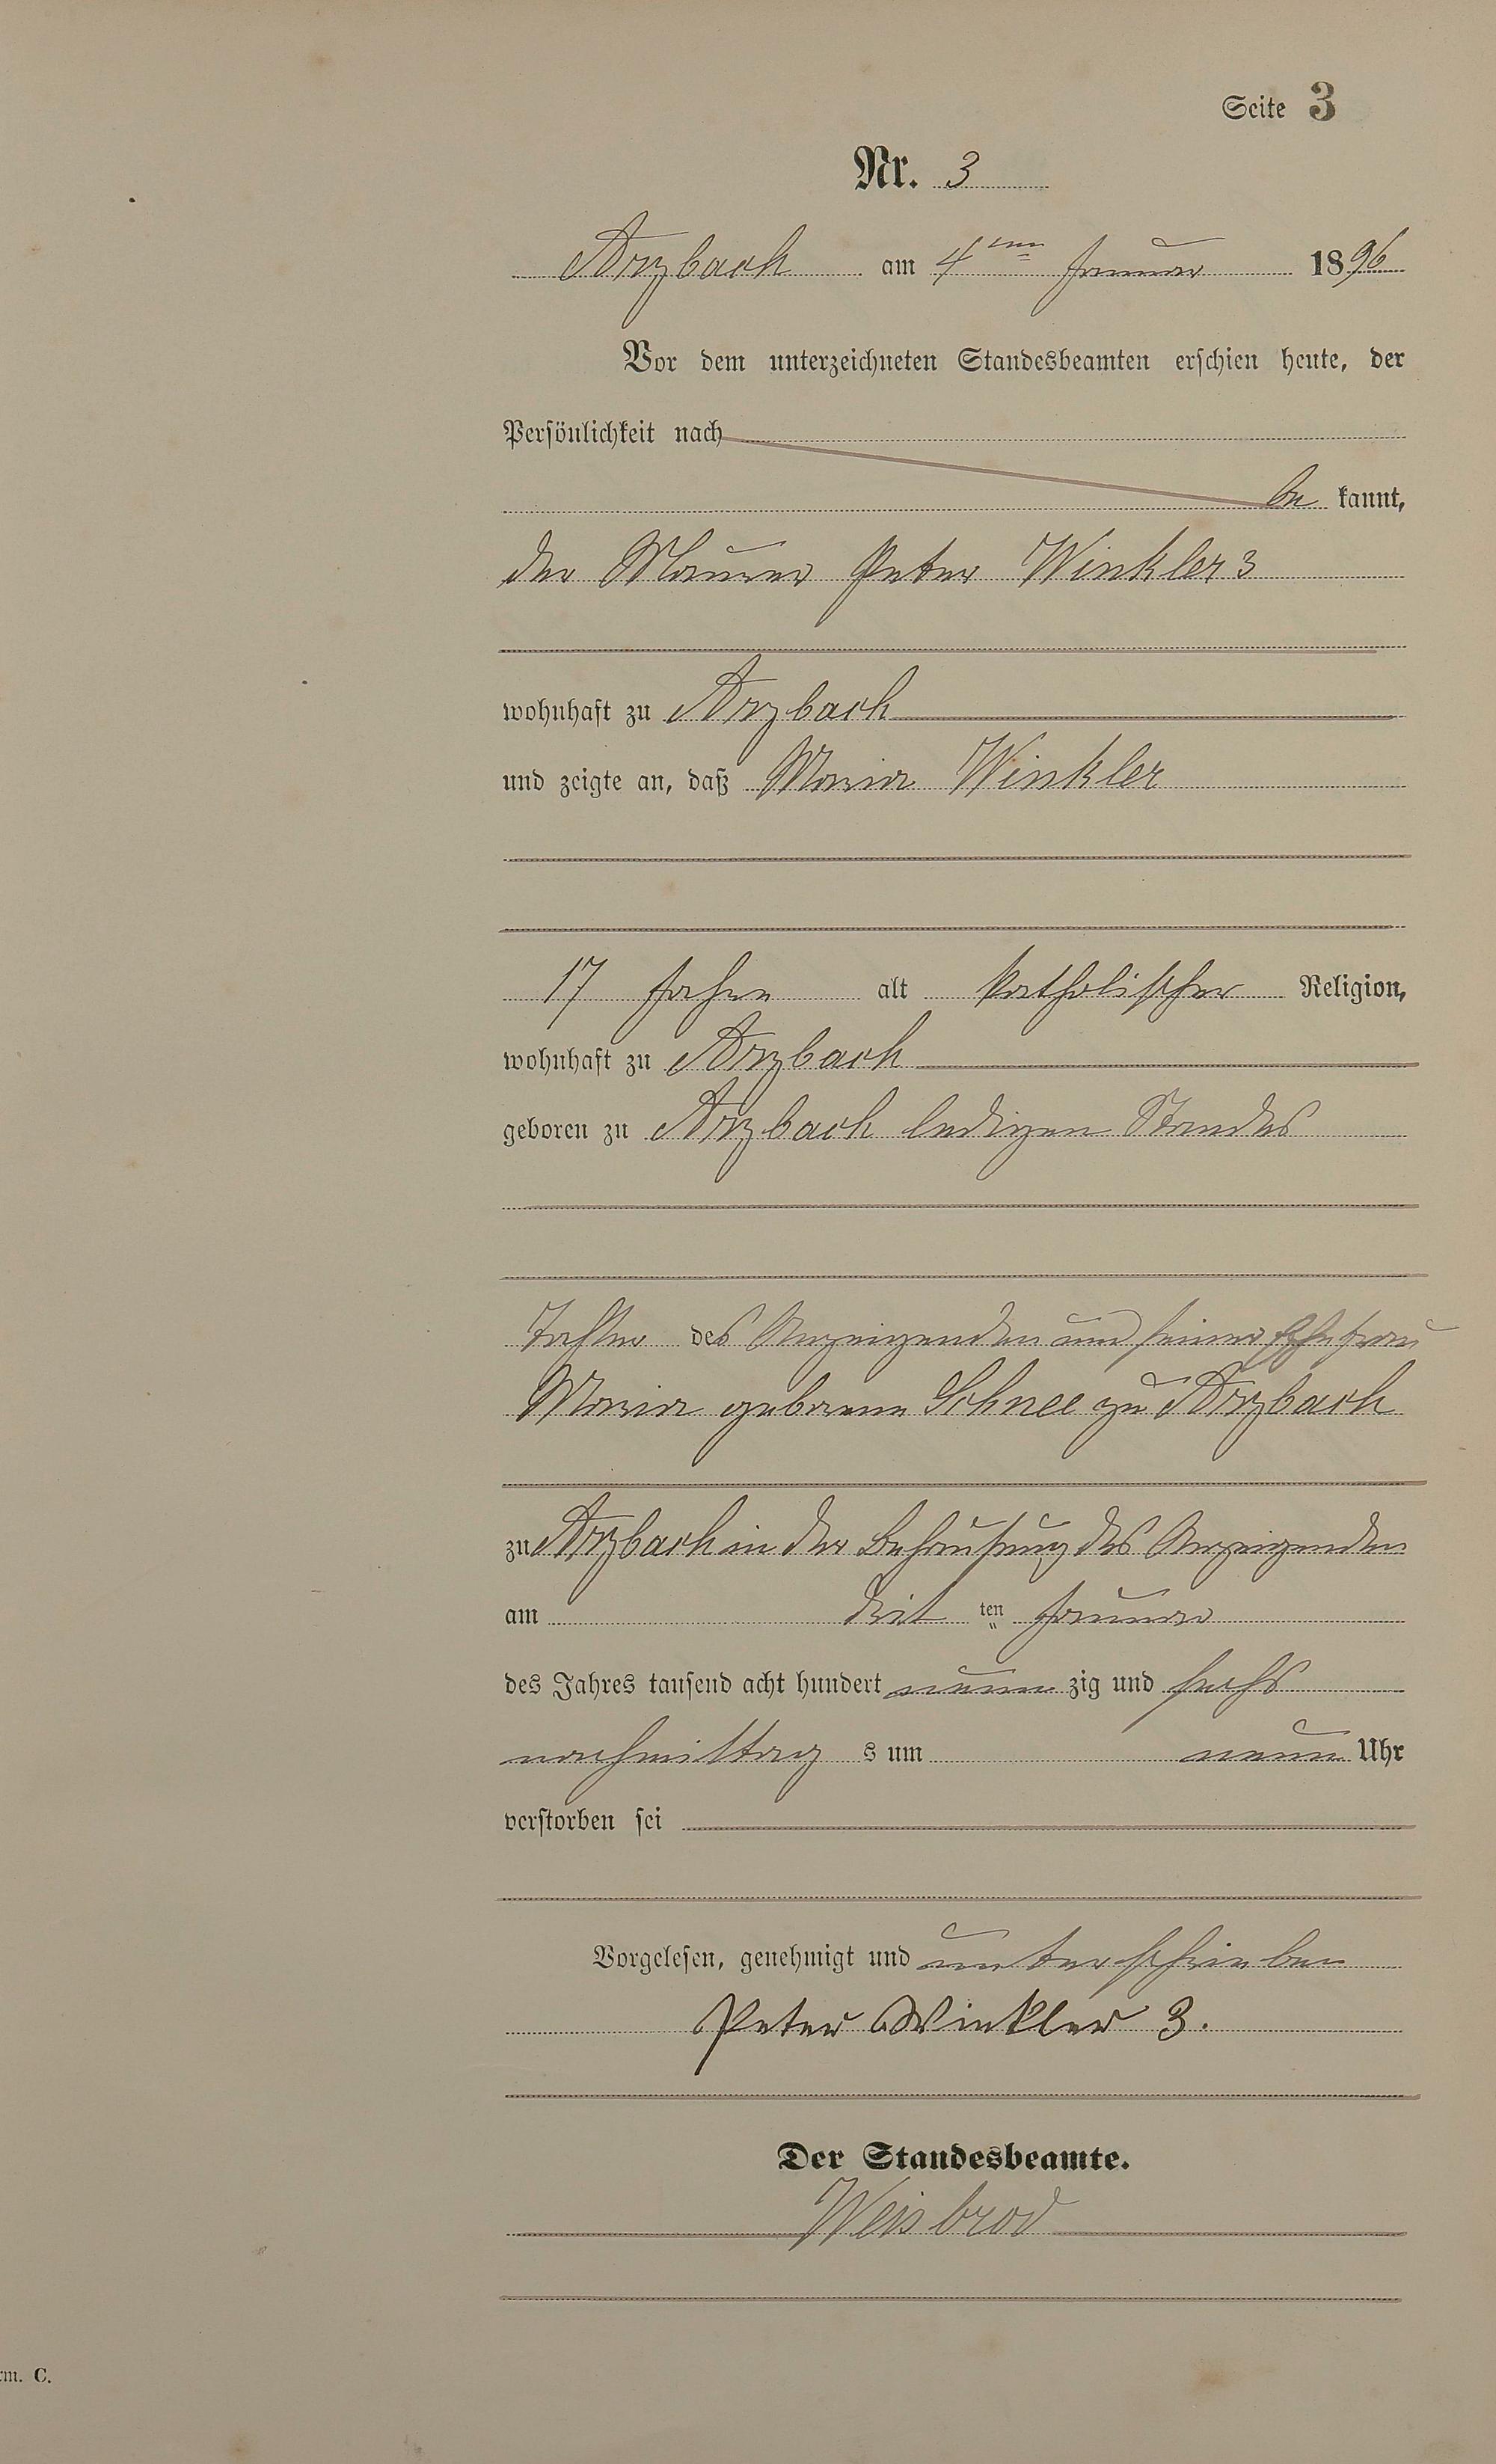 Seite 3
Nr. 3
Arzbach am 4ten Januar 1896
Vor dem unterzeichneten Standesbeamten erschien heute, der
Persönlichkeit nach
be kannt,
der Maurer Peter Winkler 3
wohnhaft zu Arzbach
und zeigte an, daß Maria Winkler
17 Jahre alt katholischer Religion,
wohnhaft zu Arzbach
geboren zu Arzbach ledigen Standes
Tochter des Anzeigenden und seiner Ehefrau
Maria geborene Schnee zu Arzbach
zu Arzbach in der Behausung des Anzeigenden
am drit ten Januar
des Jahres tausend acht hundert neun zig und sechs
nachmittag s um neun Uhr
verstorben sei
Vorgelesen, genehmigt und unterschrieben
Peter Winkler 3.
Der Standesbeamte.
Weisbrod
rm. C.